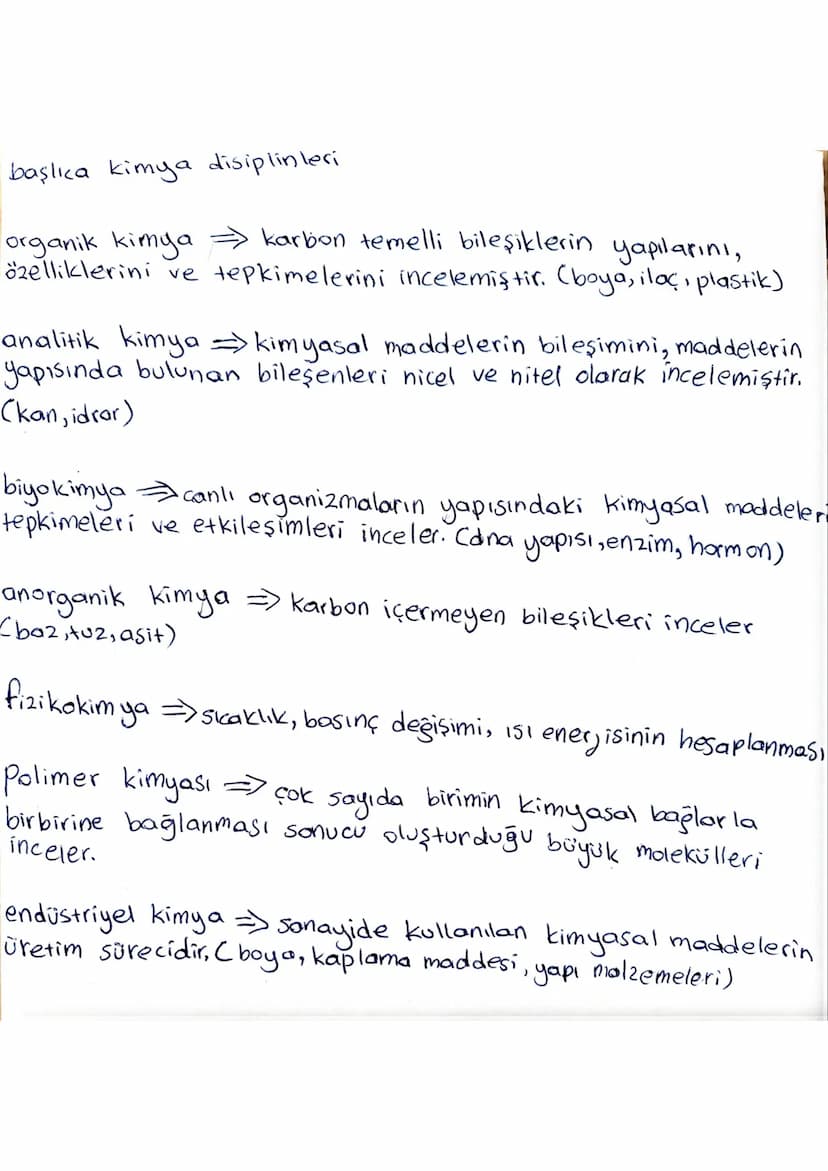 başlıca kimya disiplinleri
organik kimya => karbon temelli bileşiklerin yapılarını,
özelliklerini ve tepkimelerini incelemiştir. (boya, ilaç, plastik)
analitik kimya => kimyasal maddelerin bileşimini, maddelerin
yapısında bulunan bileşenleri nicel ve nitel olarak incelemiştir.
(kan, idrar)
biyokimya => canlı organizmaların yapısındaki kimyasal maddeleri
tepkimeleri ve etkileşimleri inceler. (dna yapısı, enzim, hormon)
anorganik kimya => karbon içermeyen bileşikleri inceler
(baz, tuz, asit)
fizikokimya => sıcaklık, basınç değişimi, ısı enerjisinin hesaplanması
Polimer kimyası => çok sayıda birimin kimyasal bağlarla
birbirine bağlanması sonucu oluşturduğu büyük molekülleri
inceler.
endüstriyel kimya => sanayide kullanılan kimyasal maddelerin
üretim sürecidir, (boya, kaplama maddesi, yapı malzemeleri)